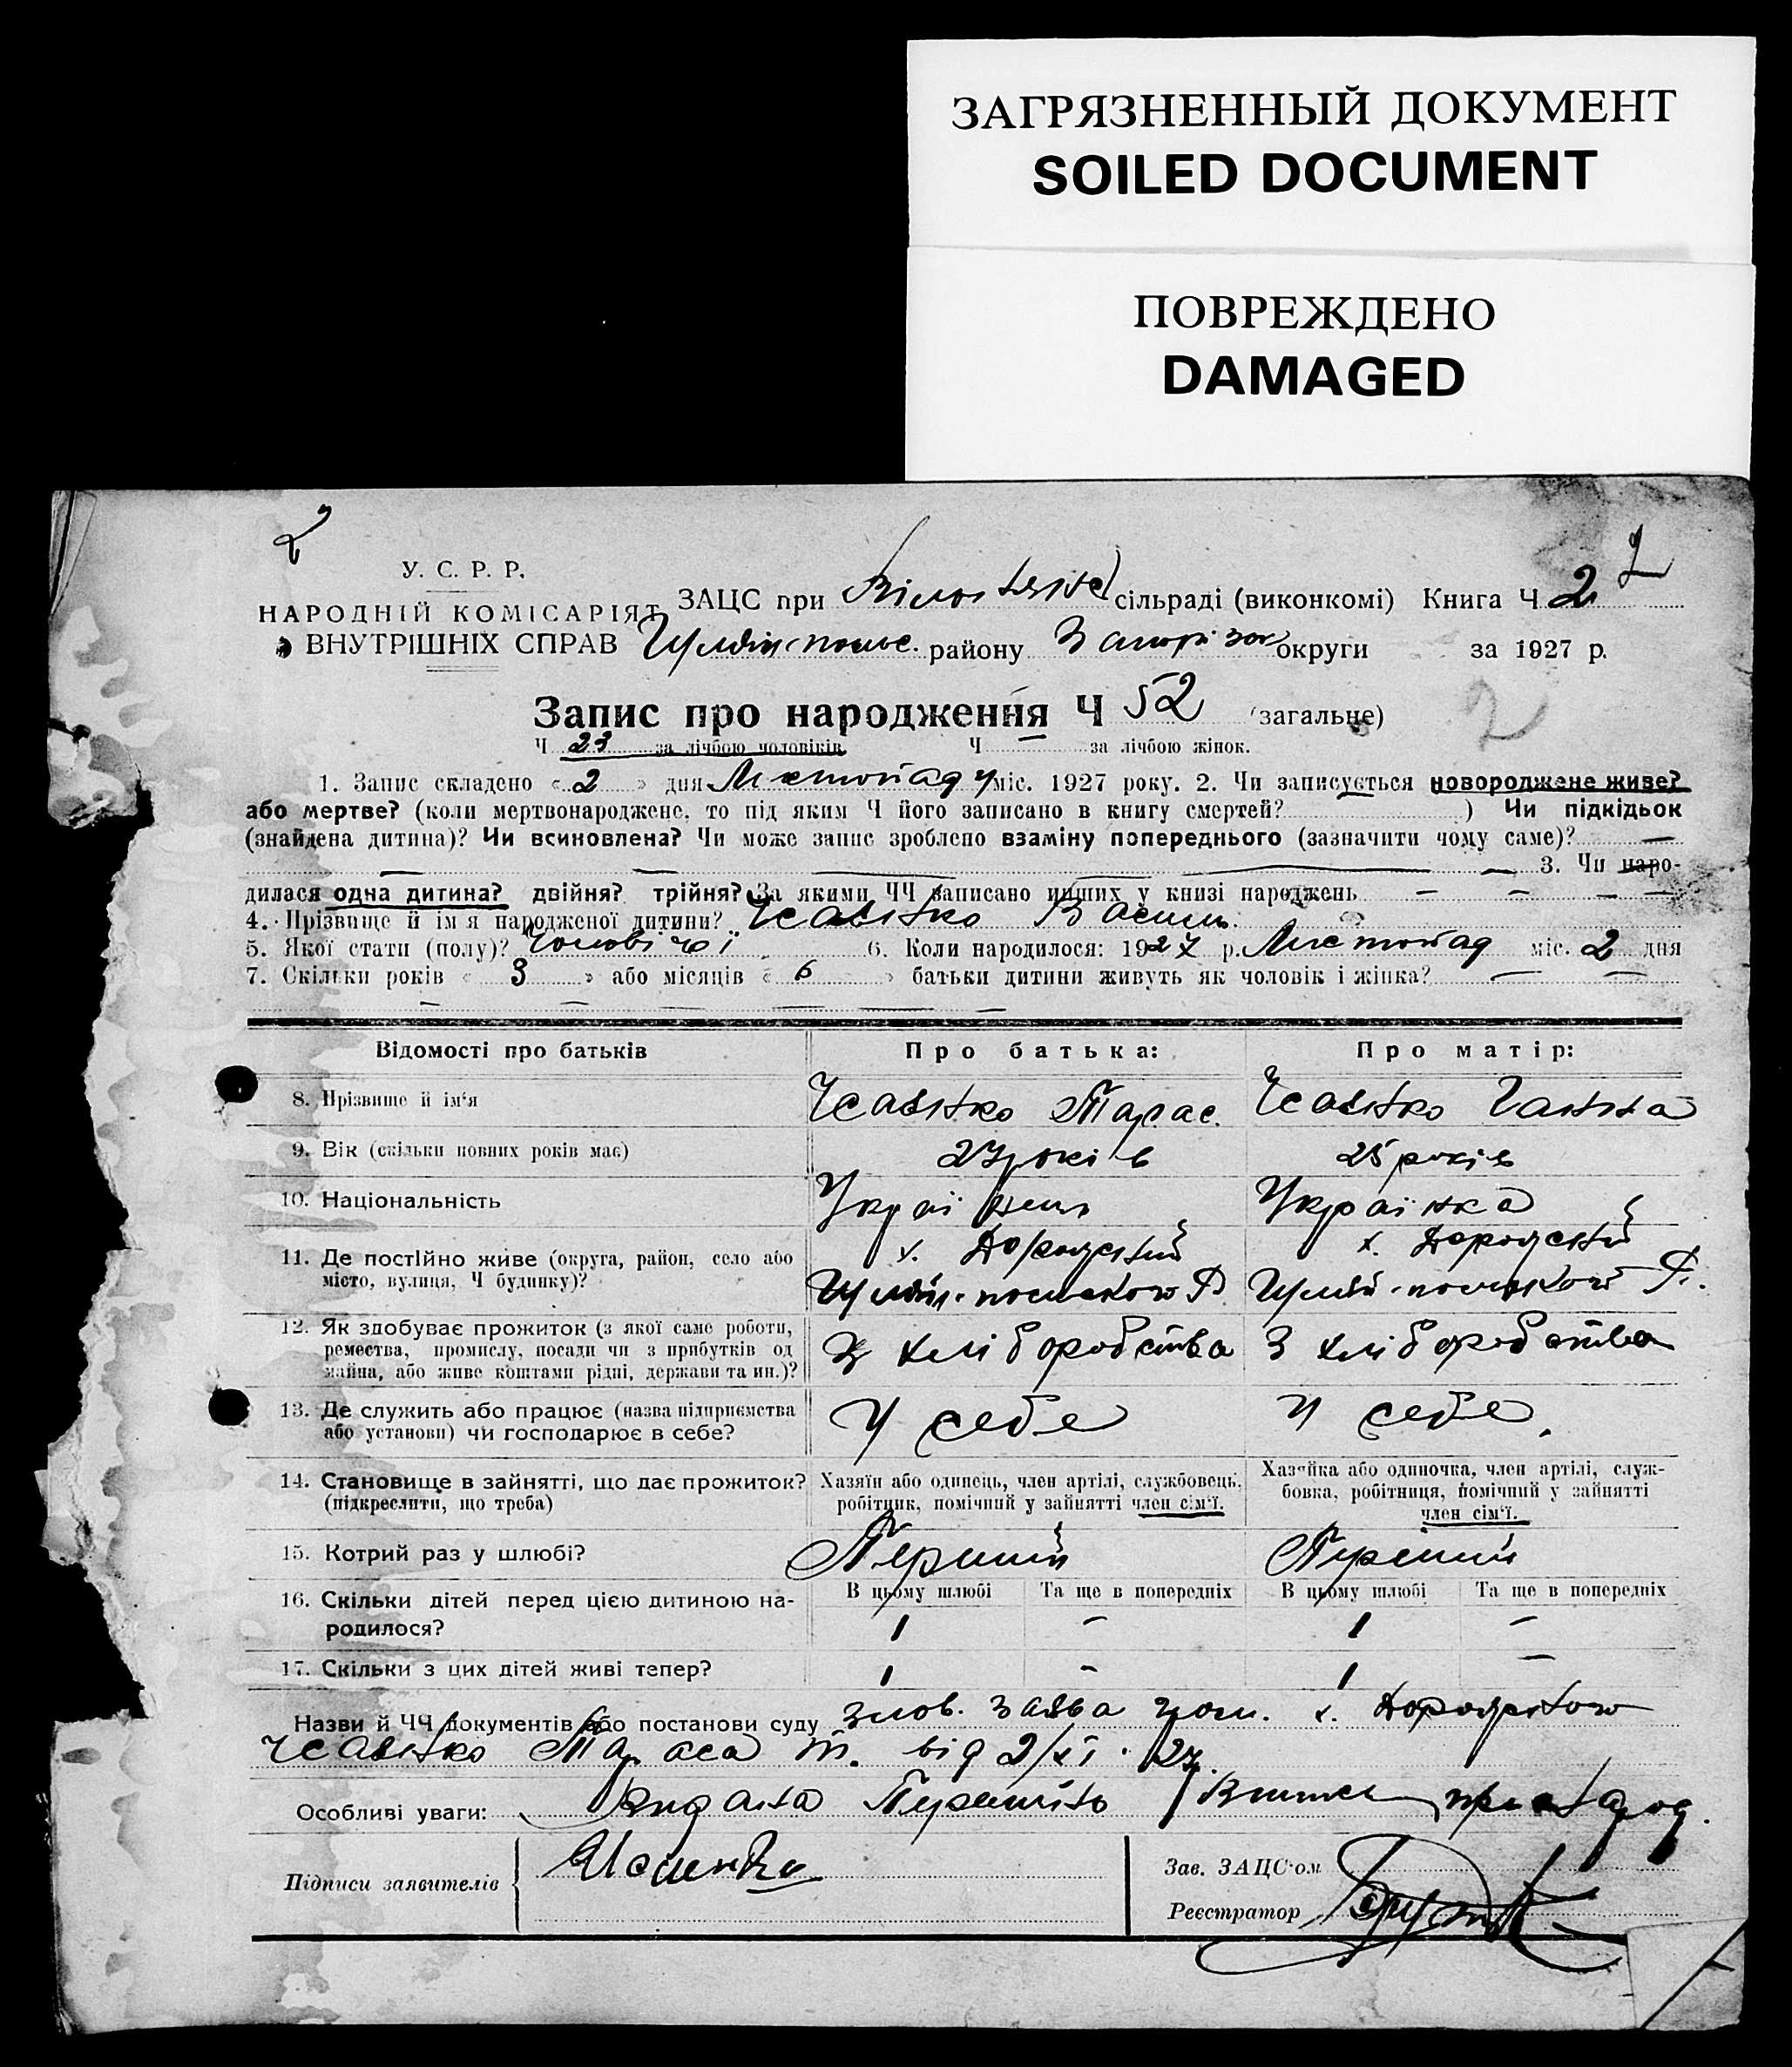 ЗАГРЯЗНЕННЫЙ ДОКУМЕНТ
SOILED DOCUMENT
ПОВРЕЖДЕНО
DAMAGED
2
2
У. С. Р. Р.
НАРОДНІЙ КОМІСАРІЯТ
ВНУТРІШНІХ СПРАВ
ЗАЦС при сільраді (виконкомі) Книга Ч 2
району Запорізок округи за 1927 р.
Запис про народження Ч 52 (загальне)
2
Ч 23 за лічбою чоловіків Ч за лічбою жінок.
1. Запис складено « 2 » дня Листопаду міс. 1927 року. 2. Чи записується новороджене живе?
або мертве? (коли мертвонароджене, то під яким Ч його записано в книгу смертей? ) Чи підкідьок
(знайдена дитина)? Чи всиновлена? Чи може запис зроблено взаміну попереднього (зазначити чому саме)? —
3. Чи наро-
дилася одна дитина? двійня? трійня? За якими ЧЧ записано инших у книзі народжень — — — —
4. Прізвище й ім'я народженої дитини? Ісаєнко Василь.
5. Якої стати (полу)? Чоловічої 6. Коли народилося: 1927 р. Листопад міс. 2 дня
7. Скільки років « 3 » або місяців « 6 » батьки дитини живуть як чоловік і жінка? — —
Відомості про батьків Про батька: Про матір:
8. Прізвище й ім'я Ісаєнко Тарас. Ісаєнко Ганна
9. Вік (скільки повних років має) 27 років 25 років
10. Національність Українець Українка
11. Де постійно живе (округа, район, село або
місто, вулиця, Ч будинку)?
12. Як здобуває прожиток (з якої саме роботи,
ремества, промислу, посади чи з прибутків од
майна, або живе коштами рідні, держави та ин.)?
З хліборобства З хліборобства
13. Де служить або працює (назва підприємства
або установи) чи господарює в себе?
У себе У себе.
14. Становище в зайнятті, що дає прожиток?
(підкреслити, що треба)
Хазяїн або одинець, член артілі, службовець,
робітник, помічний у зайнятті член сім'ї.
Хазяйка або одиночка, член артілі, служ-
бовка, робітниця, помічний у зайнятті
член сім'ї.
15. Котрий раз у шлюбі? Перший Перший
16. Скільки дітей перед цією дитиною на-
родилося?
В цьому шлюбі Та ще в попередніх В цьому шлюбі Та ще в попередніх
1 – 1 –
17. Скільки з цих дітей живі тепер? 1 – 1 –
Назви й ЧЧ документів або постанови суду заява х.
Ісаєнко Тараса Т. від 2/XI 27.
Особливі уваги:
Підписи заявителів
Зав. ЗАЦС'ом
Реєстратор